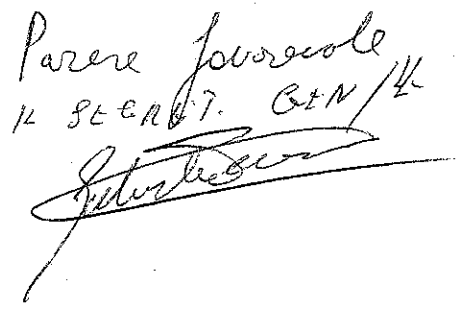 Parere favorevole
IL SEGRET. GEN/LE